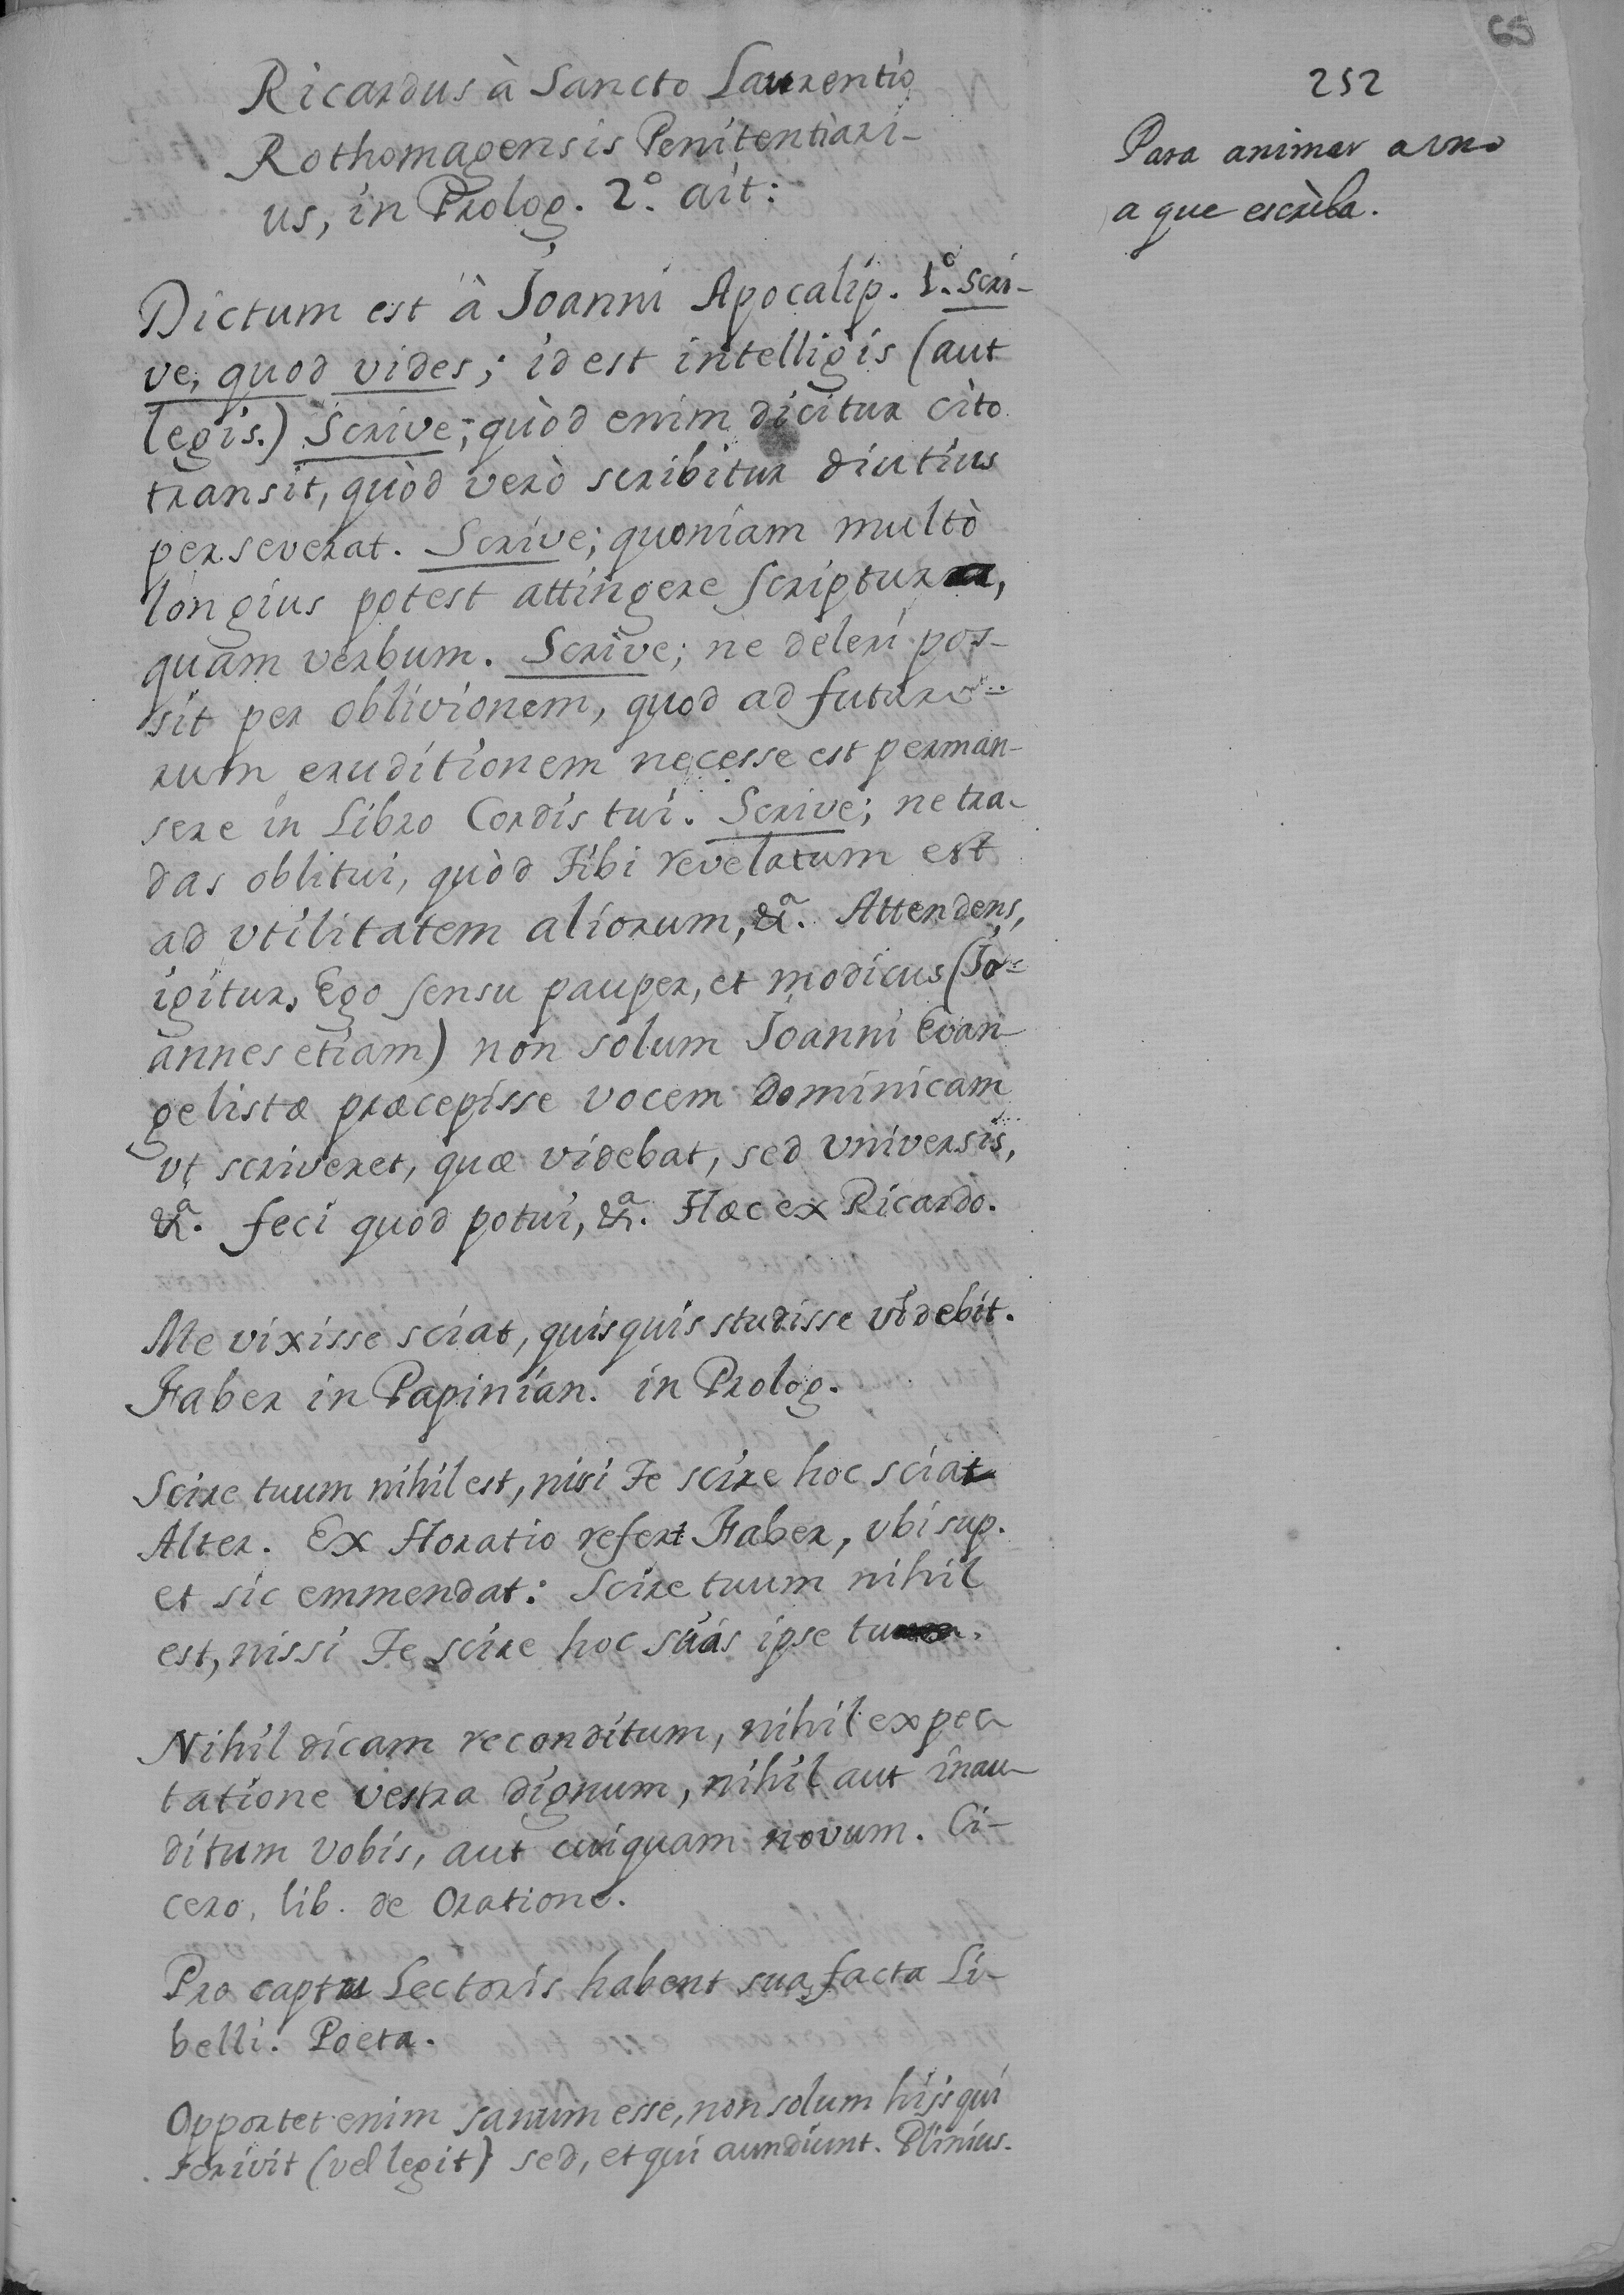 65
252
Para animar a vno
a que escriba.
Ricardus à Sancto Laurentio
Rothomagensis Penitentiari-
us, in Prolog. 2º. ait:
Dictum est à Joanni Apocalip. 1º. Scri-
ve, quod vides; id est intelligis (aut
legis.) Scrive; quòd enim dicitur cito
transit, quòd verò scribitur diutius
perseverat. Scrive; quoniam multò
longius potest attingere scriptura,
quam verbum. Scrive; ne deleri pos-
sit per oblivionem, quod ad futuro-
rum eruditionem necesse est perman-
sere in Libro Cordis tui. Scrive; ne tra-
das oblitui, quòd Tibi revelatum est
ad vtilitatem aliorum, &ª. Attendens,
igitur, Ego sensu pauper, et modicus (Jo-
annes etiam) non solum Joanni Evan-
gelistæ præcepisse vocem Dominicam
vt scriveret, quæ videbat, sed vniversis,
&ª. feci quod potui, &ª. Hæc ex Ricardo.
Me vixisse sciat, quisquis studisse videbit.
Faber in Papinian. in Prolog.
Scire tuum nihil est, nisi Te scire hoc sciat
Alter. Ex Horatio refert Faber, vbi sup.
et sic emmendat: Scire tuum nihil
est, nissi Te scire hoc scias ipse tu
Nihil dicam reconditum, nihil expec-
tatione vestra dignum, nihil aut inau-
ditum vobis, aut cuiquam novum. Ci-
cero, lib. de Oratione.
Pro captu Lectoris habent sua facta Li-
belli. Poeta.
Opportet enim sanum esse, non solum hijs qui
scrivit (vel legit) sed, et qui aundiunt. Plinius.